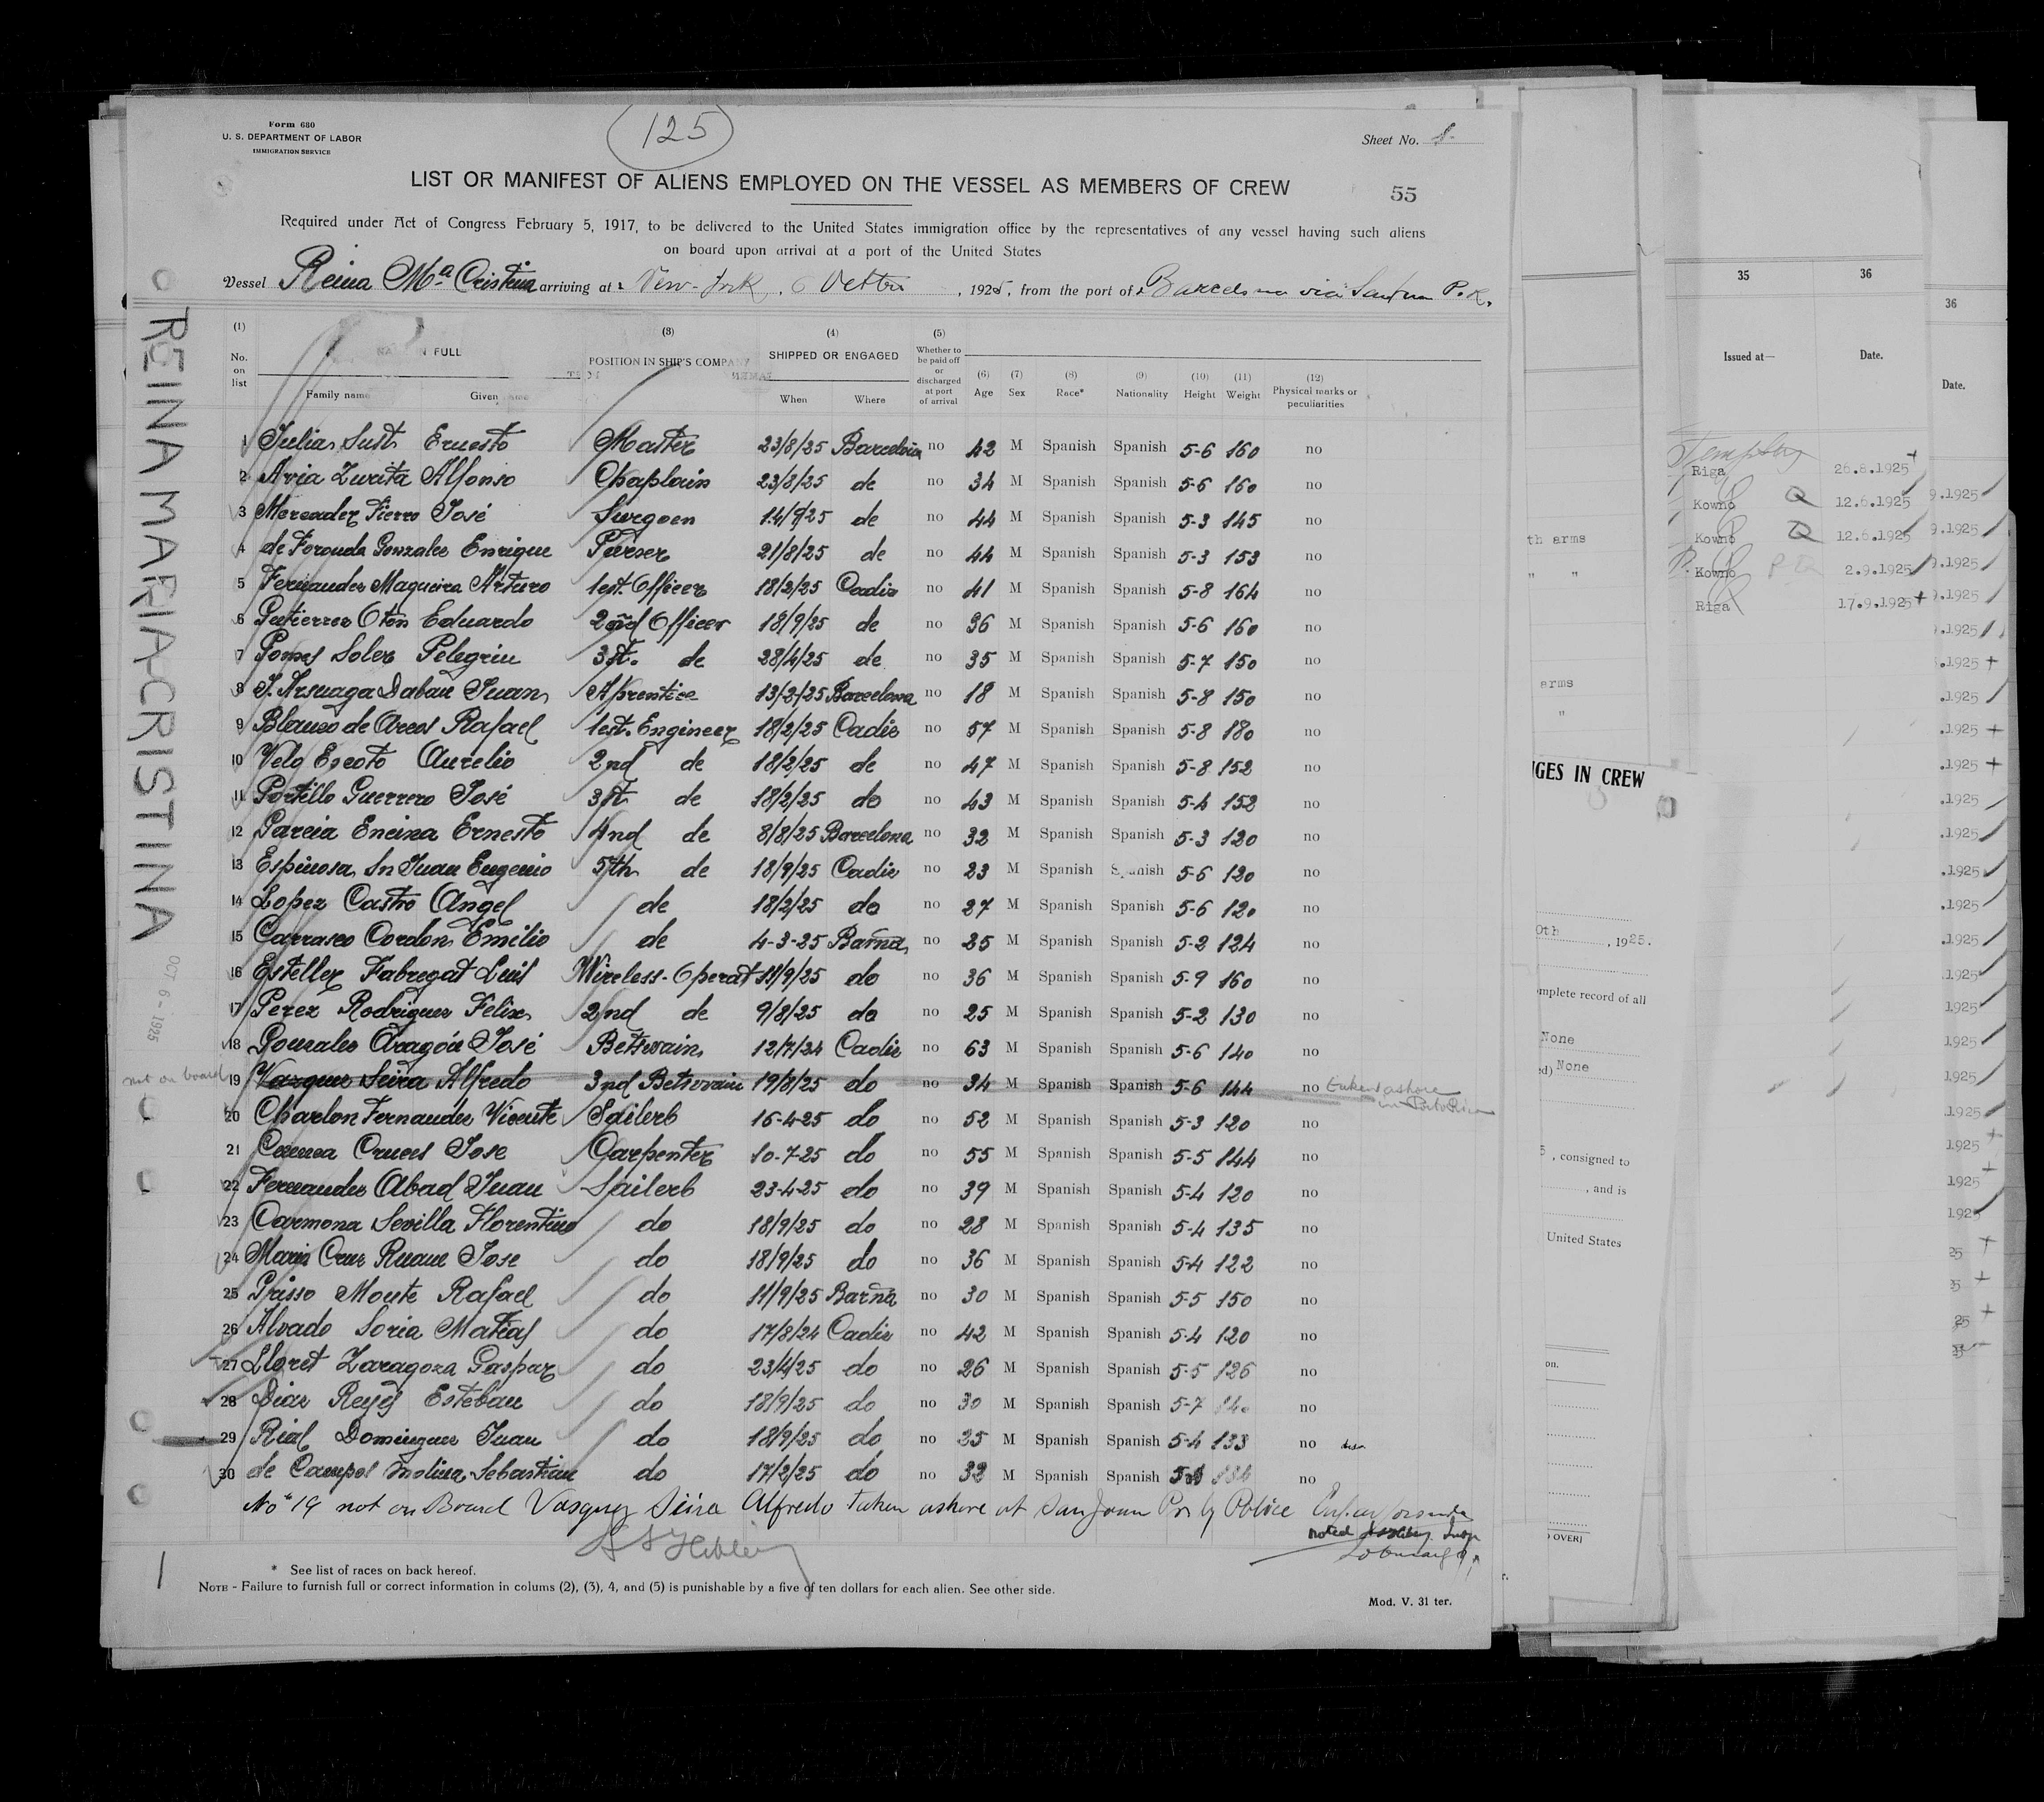 Form 680
U. S. DEPARTMENT OF LABOR
IMMIGRATION SERVICE
125
Sheet No. 1.
LIST OR MANIFEST OF ALIENS EMPLOYED ON THE VESSEL AS MEMBERS OF CREW
55
Required under Act of Congress February 5, 1917, to be delivered to the United States immigration office by the representatives of any vessel having such aliens
on board upon arrival at a port of the United States
Vessel Reina Mª Cristina arriving at New-York, 6 , 1925, from the port of Barcelona via P.R.
(1) (3) (4) (5)
No. on list
FULL
Family name Given
POSITION IN SHIP'S COMPANY
SHIPPED OR ENGAGED
When Where
Whether to be paid off or discharged at port of arrival
(6) Age (7) Sex (8) Race* (9) Nationality (10) Height (11) Weight (12) Physical marks or peculiarities
1 Julia Sust Ernesto Master 23/8/25 Barcelona no 42 M Spanish Spanish 5-6 160 no
2 Avia Zurita Alfonso Chaplain 23/8/25 do no 34 M Spanish Spanish 5-6 160 no
3 Mercader Fierro José Surgoen 14/9/25 do no 44 M Spanish Spanish 5-3 145 no
4 de Foronda Gonzales Enrique Purser 21/8/25 do no 44 M Spanish Spanish 5-3 153 no
5 Fernandes Maqueira Arturo 1est. Officer 18/2/25 Cadiz no 41 M Spanish Spanish 5-8 164 no
6 Gutierrez Oton Eduardo 2ond Officer 18/9/25 do no 36 M Spanish Spanish 5-6 160 no
7 Pomes Soler Pelegrin 3st. do 28/4/25 do no 35 M Spanish Spanish 5-7 150 no
8 J. Arsuaga Dabau Juan Aprentice 13/2/25 Barcelona no 18 M Spanish Spanish 5-8 150 no
9 Blanco de Arcos Rafael 1est. Engineer 18/2/25 Cadiz no 57 M Spanish Spanish 5-8 180 no
10 Velo Escoto Aurelio 2nd do 18/2/25 do no 47 M Spanish Spanish 5-8 152 no
11 Portillo Guerrero José 3st do 18/2/25 do no 43 M Spanish Spanish 5-4 152 no
12 Garcia Encina Ernesto 4nd do 8/8/25 Barcelona no 32 M Spanish Spanish 5-3 120 no
13 Espinosa Sn Juan Eugenio 5th do 18/9/25 Cadiz no 23 M Spanish Spanish 5-6 120 no
14 Lopez Castro Angel do 18/2/25 do no 27 M Spanish Spanish 5-6 120 no
15 Carrasco Cordon Emilio do 4-3-25 Barna no 25 M Spanish Spanish 5-2 124 no
16 Esteller Fabregat Luis Wireless-Operat 11/9/25 do no 36 M Spanish Spanish 5-9 160 no
17 Perez Rodrigues Felix 2nd do 9/8/25 do no 25 M Spanish Spanish 5-2 130 no
18 Gonzales Aragón José Betswain 12/7/24 Cadiz no 63 M Spanish Spanish 5-6 140 no
not on board 19 Vazques Seira Alfredo 3nd Betswain 19/8/25 do no 34 M Spanish Spanish 5-6 144 no Taken ashore in Porto Rico
20 Charlon Fernandes Vicente Sailerb 16-4-25 do no 52 M Spanish Spanish 5-3 120 no
21 Cances Jose Carpenter 10-7-25 do no 55 M Spanish Spanish 5-5 144 no
22 Fernandes Abad Juan Sailerb 23-4-25 do no 39 M Spanish Spanish 5-4 120 no
23 Carmona Sevilla Florentino do 18/9/25 do no 28 M Spanish Spanish 5-4 135 no
24 Cruz Jose do 18/9/25 do no 36 M Spanish Spanish 5-4 122 no
25 Prisso Monte Rafael do 11/9/25 Barna no 30 M Spanish Spanish 5-5 150 no
26 Alvado Soria Matias do 17/8/24 Cadiz no 42 M Spanish Spanish 5-4 120 no
27 Lloret Zaragoza Gaspar do 23/4/25 do no 26 M Spanish Spanish 5-5 126 no
28 Diaz Reyes Esteban do 18/9/25 do no 30 M Spanish Spanish 5-7 140 no
29 Rial Domingues Juan do 18/9/25 do no 25 M Spanish Spanish 5-4 133 no
30 de Campos Molina Sebastian do 17/2/25 do no 32 M Spanish Spanish no
No 19 not on Board Vasquez Seira Alfredo taken ashore at San Juan P.R by Police
noted
* See list of races on back hereof.
NOTE - Failure to furnish full or correct information in colums (2), (3), 4, and (5) is punishable by a five of ten dollars for each alien. See other side.
Mod. V. 31 ter.
REINA MARIA-CRISTINA
OCT 6 - 1925
th arms
" "
arms
"
GES IN CREW
0th , 1925.
omplete record of all
None
ed) None
, consigned to
, and is
United States
on.
OVER]
35 36
Issued at— Date.
Riga 26.8.1925
Kowno 12.6.1925
Kowno 12.6.1925
Kowno 2.9.1925
Riga 17.9.1925
36
Date.
9.1925
9.1925
9.1925
9.1925
.1925
.1925
.1925
.1925
.1925
.1925
.1925
.1925
.1925
.1925
1925
1925
1925
1925
1925
1925
1925
1925
25
25
25